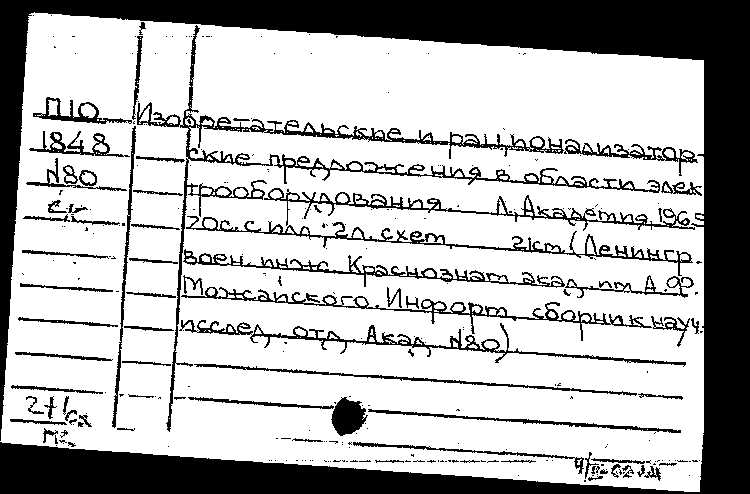 П10
1848
N80
Изобретательские и рационализатор-
ские предложения в области элек
трооборудования. Л, Академия, 1965
70с. с илл; 2л. схем. 2км. (Ленингр.
воен. инж. Краснознам акад. им А.Ф.
Можайского. Информ. сборник науч.-
исслед. отд. Акад. N80).
2+1